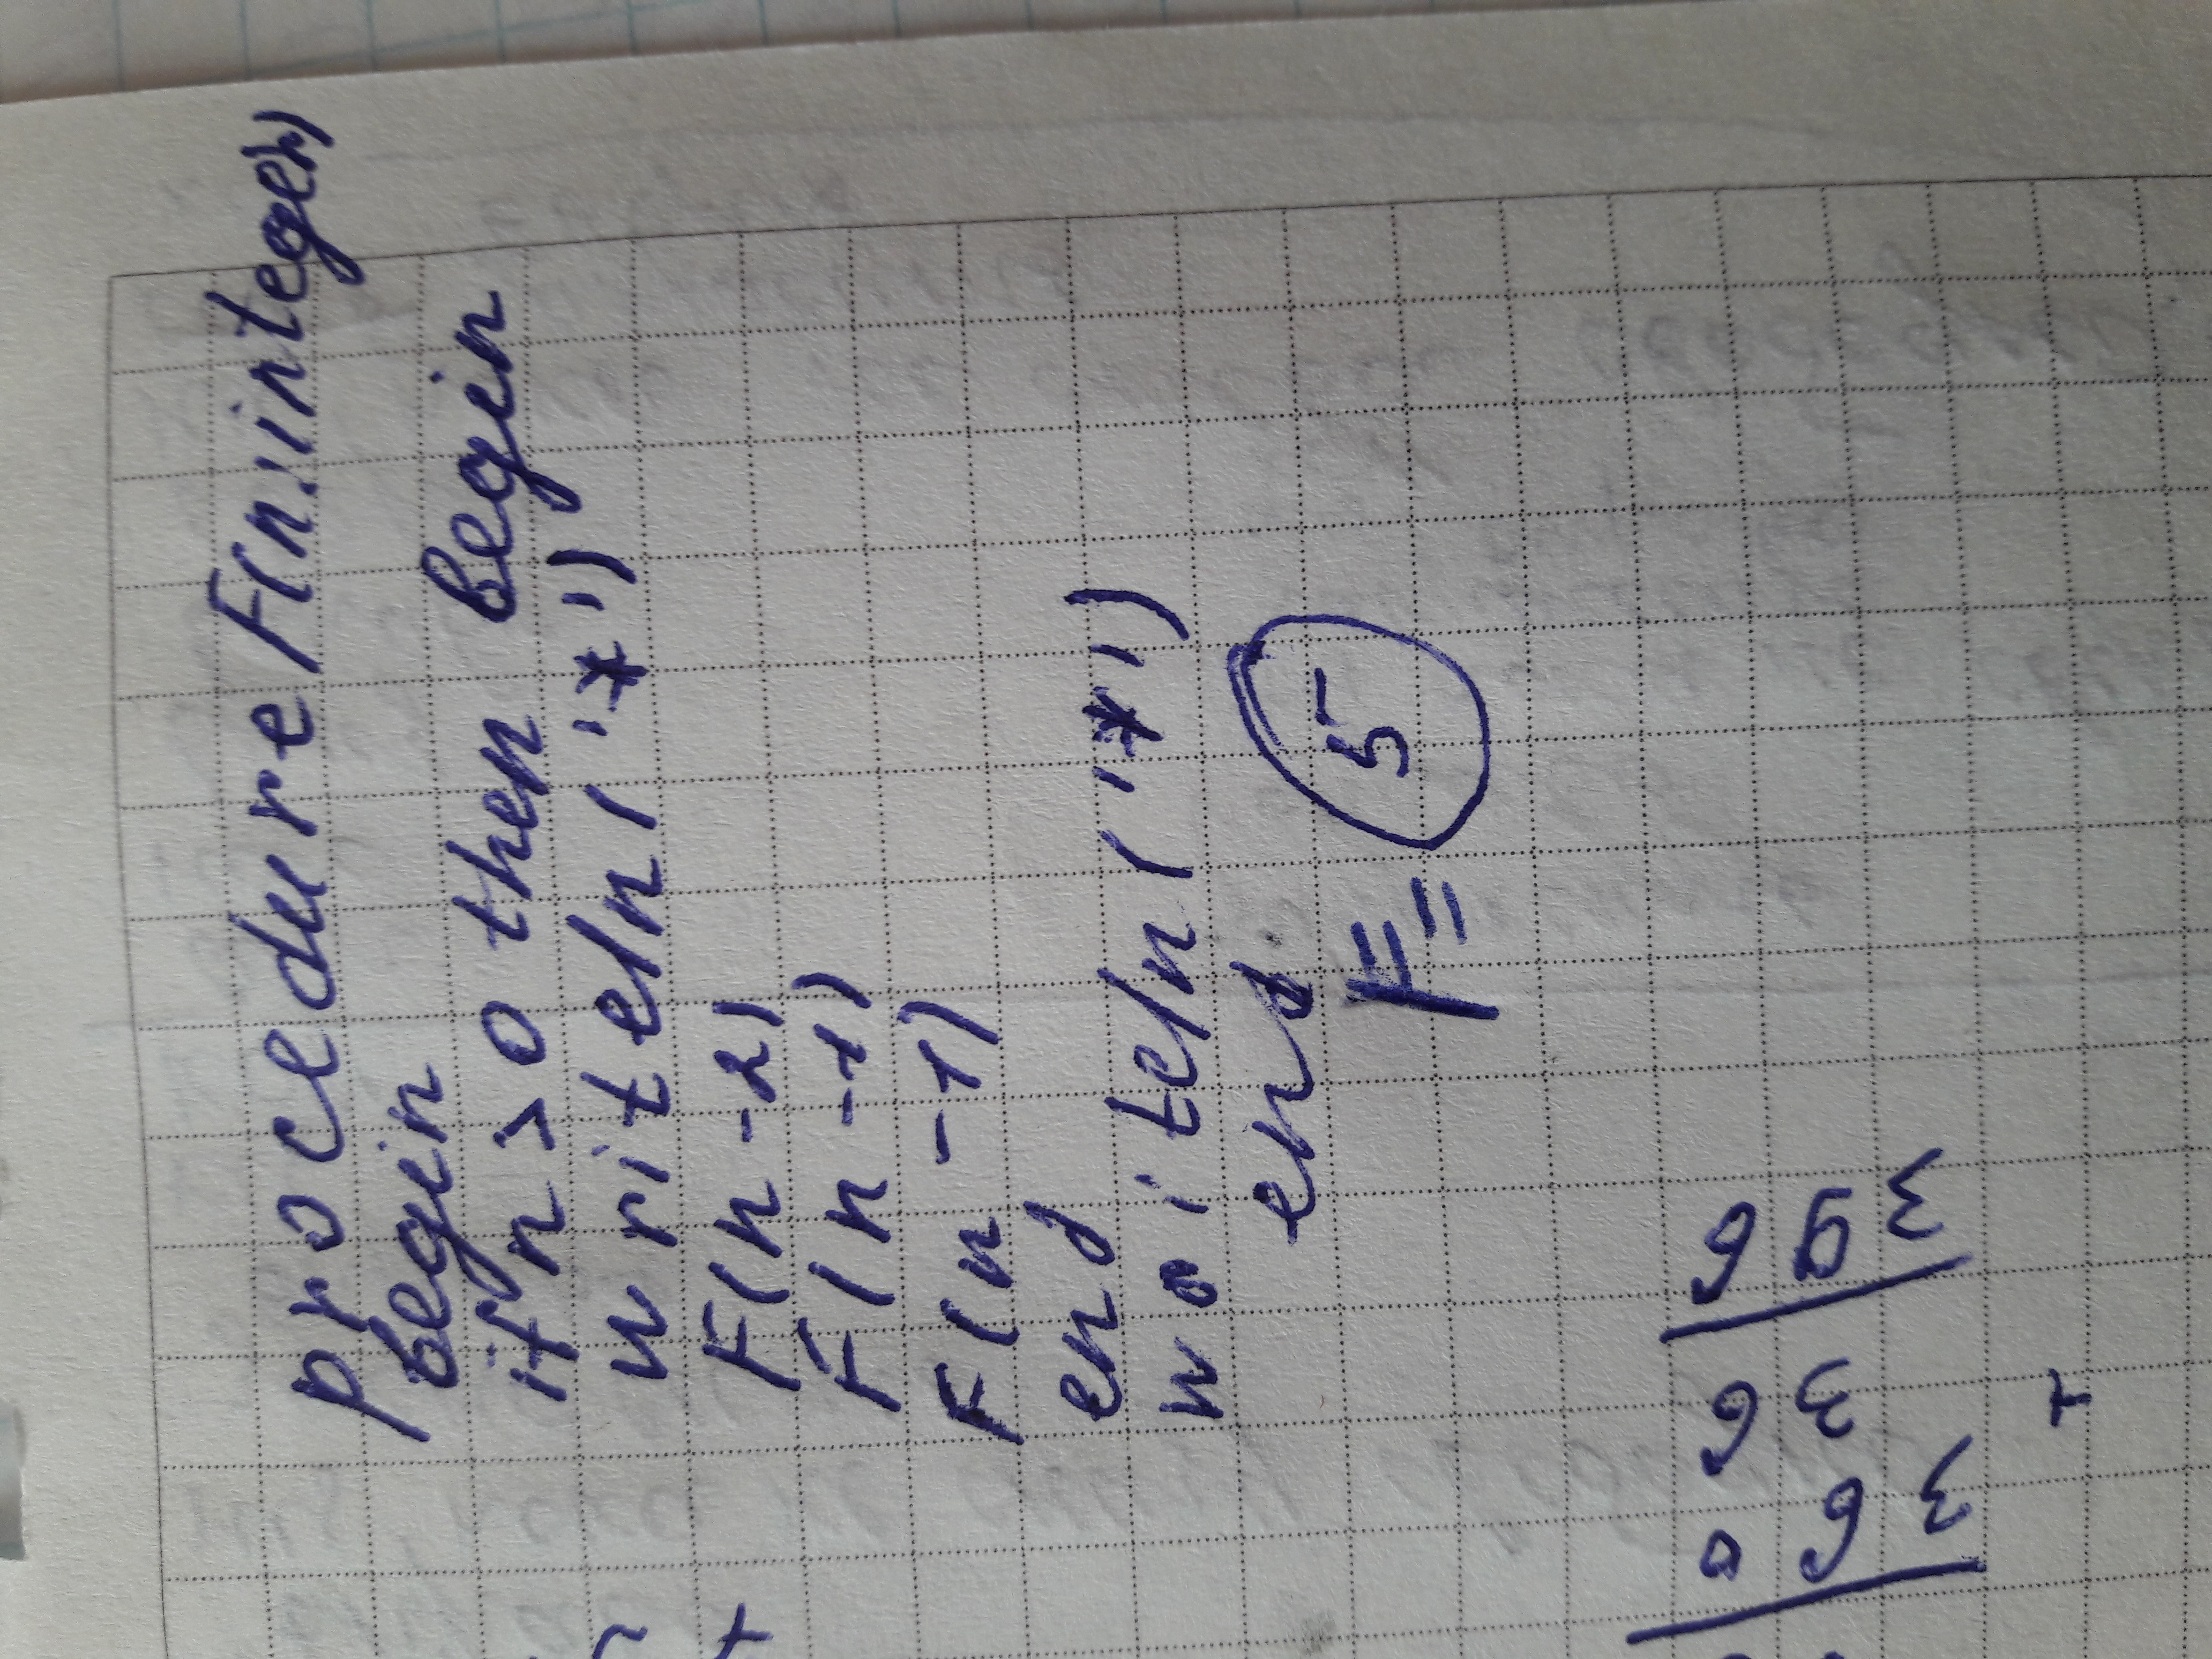 procedure F(n:integer)
begin
if n > 0 then begin
writeln('*')
F(n-2)
F(n-1)
F(n-1)
end
writeln('*')
end
F= 5